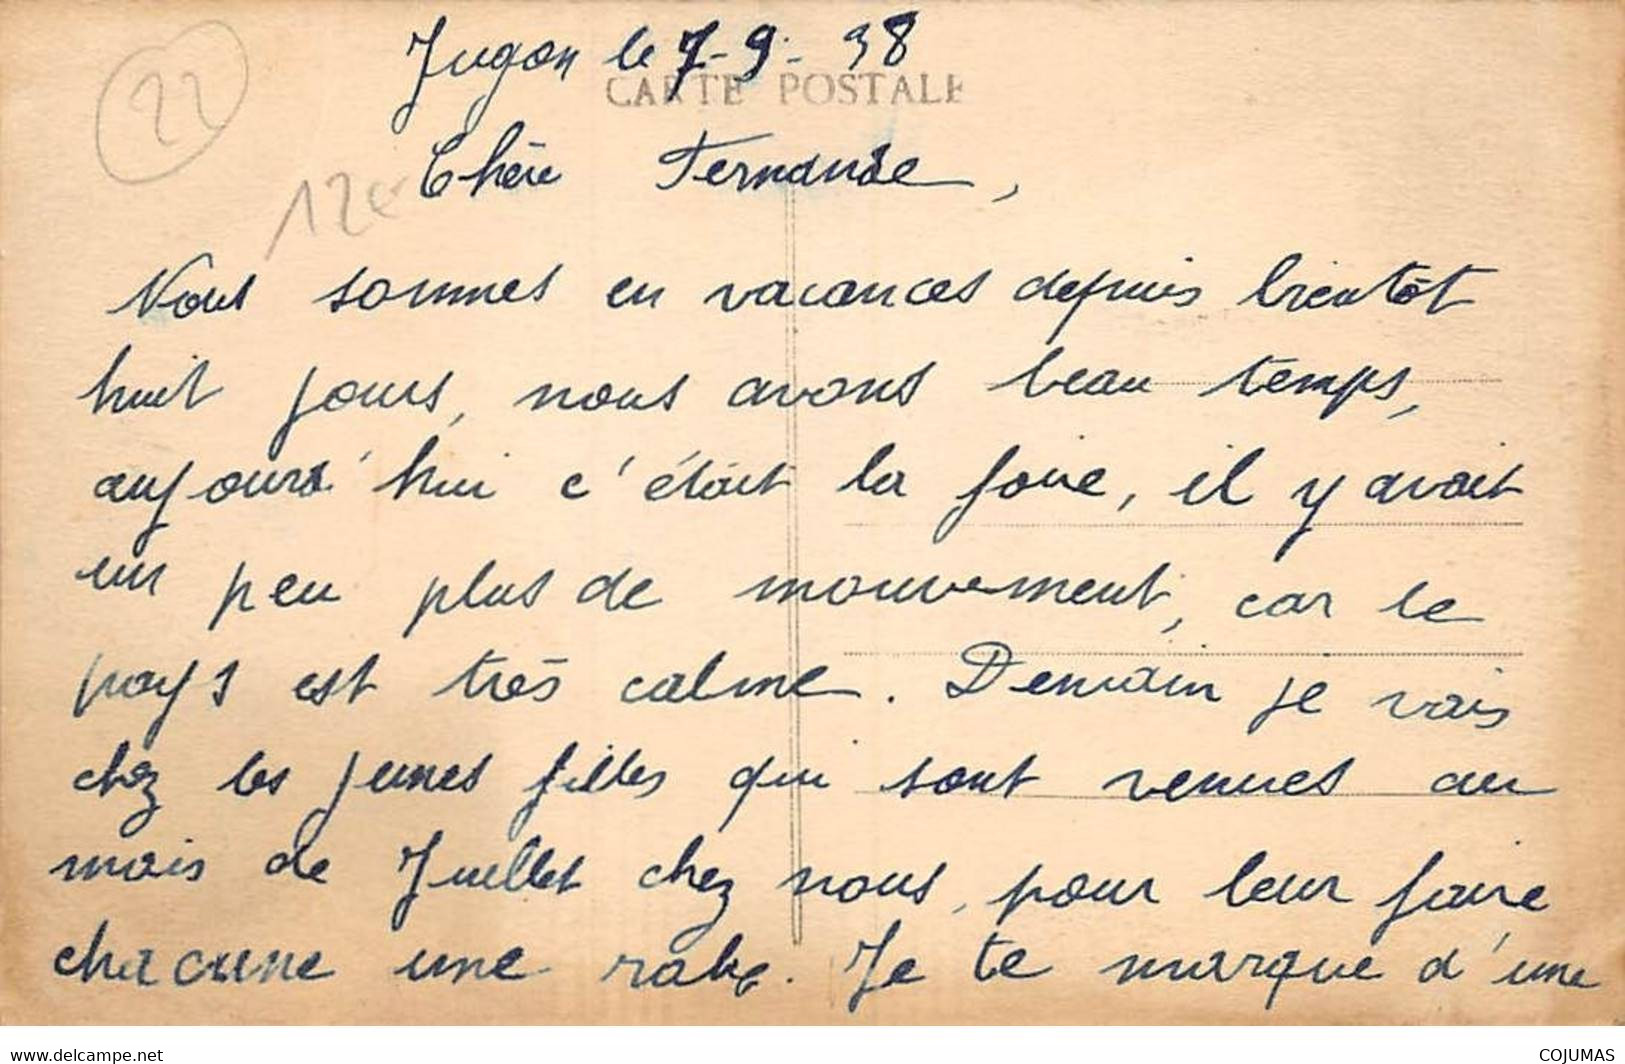 22
Jugon le 7-9-38
CARTE POSTALE
12€
Chère Fernande,
Nous sommes en vacances depuis bientôt
huit jours, nous avons beau temps,
aujourd'hui c'était la foire, il y avait
un peu plus de mouvement, car le
pays est très calme. Demain je vais
chez les jeunes filles qui sont venues au
mois de Juillet chez nous, pour leur faire
chacune une robe. Je te marque d'une
www.delcampe.net
COJUMAS